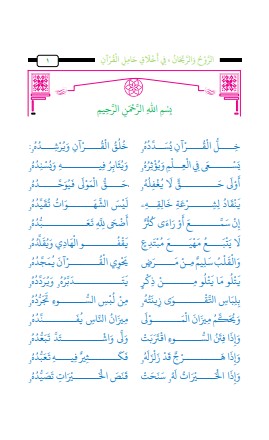 ١
الرَّوْحُ وَالرَّيْحَانُ ، فِي أَخْلَاقِ حَامِلِ الْقُرْآنِ
بِسْمِ اللهِ الرَّحْمٰنِ الرَّحِيمِ
خِلُّ الْقُرْآنِ يُسَدِّدُهُ خُلُقُ الْقُرْآنِ وَيُرْشِدُهُ:
يَسْعَى فِي الْعِلْمِ وَيُؤْثِرُهُ وَيُثَابِرُ فِيهِ وَيُسْنِدُهُ
أَوْلَى حَقٍّ لَا يُغْفِلُهُ حَقُّ الْمَوْلَى فَيُوَحِّدُهُ
يَنْقَادُ لِشِرْعَةِ خَالِقِهِ، لَيْسَ الشَّهَوَاتُ تُقَيِّدُهُ
إِنْ سَمَّعَ أَوْ رَاءَى كُثُرٌ أَضْحَى لِلَّهِ تَعَبُّدُهُ
لَا يَتْبَعُ مَهْيَعَ مُبْتَدِعٍ يَقْفُو الْهَادِي وَيُقَلِّدُهُ
وَالْقَلْبُ سَلِيمٌ مِنْ مَرَضٍ يَحْوِي الْقُرْآنَ يُمَجِّدُهُ
يَتْلُو مَا يَتْلُو مِنْ ذِكْرٍ يَتَدَبَّرُهُ وَيُرَدِّدُهُ
بِلِبَاسِ التَّقْوَى زِينَتُهُ مِنْ لُبْسِ السُّوءِ تَجَرُّدُهُ
وَيُحَكِّمُ مِيزَانَ الْمَوْلَى مِيزَانُ النَّاسِ يُفَنِّدُهُ
وَإِذَا فِتَنُ السُّوءِ اقْتَرَبَتْ وَلَّى وَاشْتَدَّ تَبَعُّدُهُ
وَإِذَا هَرْجٌ قَدْ زَلْزَلَهُمْ فَكَثِيرٌ فِيهِ تَعَبُّدُهُ
وَإِذَا الْخَيْرَاتُ لَهُ سَنَحَتْ قَنَصَ الْخَيْرَاتِ تَصَيُّدُهُ